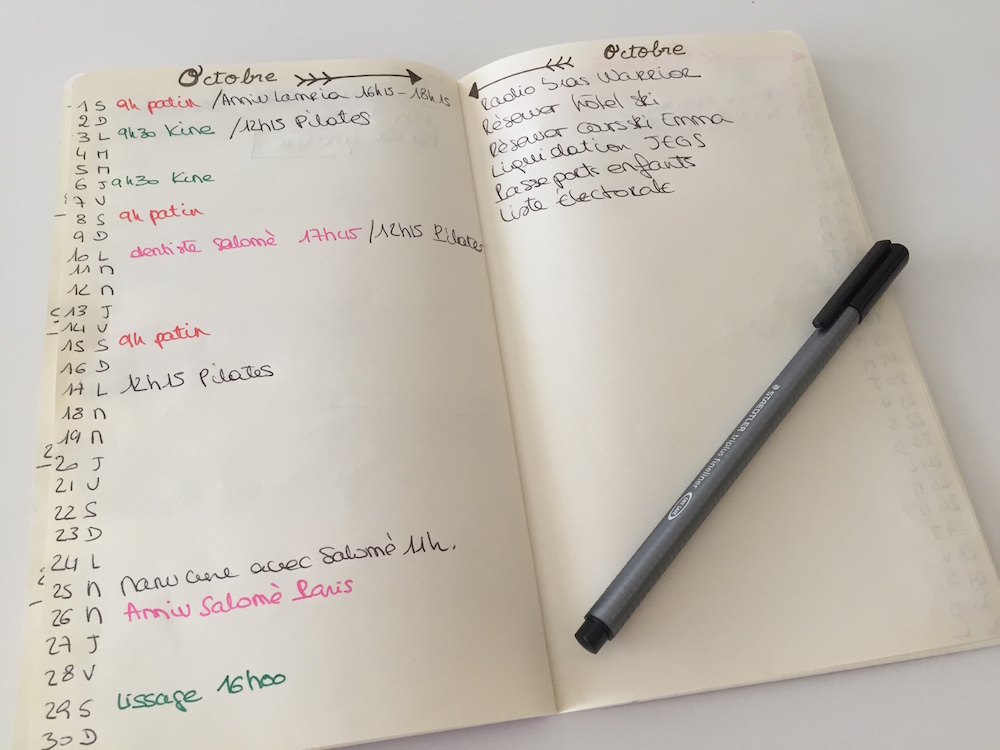 Octobre
1 S 9h patin / Anniv Lameia 16h15 - 18h15
2 D
3 L 9h30 Kine / 12h15 Pilates
4 M
5 M
6 J 9h30 Kine
7 V
8 S 9h patin
9 D
10 L dentiste Salomè 17h45 / 12h15 Pilates
11 M
12 M
13 J
14 V
15 S 9h patin
16 D
17 L 12h15 Pilates
18 M
19 M
20 J
21 V
22 S
23 D
24 L
25 M Manucure avec Salomè 11h.
26 M Anniv Salomè Paris
27 J
28 V
29 S Lissage 16h00
30 D
Octobre
Radio Warrior
Rèserver hôtel ski
Rèserver cours ski Emma
Liquidation JEGS
Passeports enfants
Liste électorale
STAEDTLER triplus fineliner